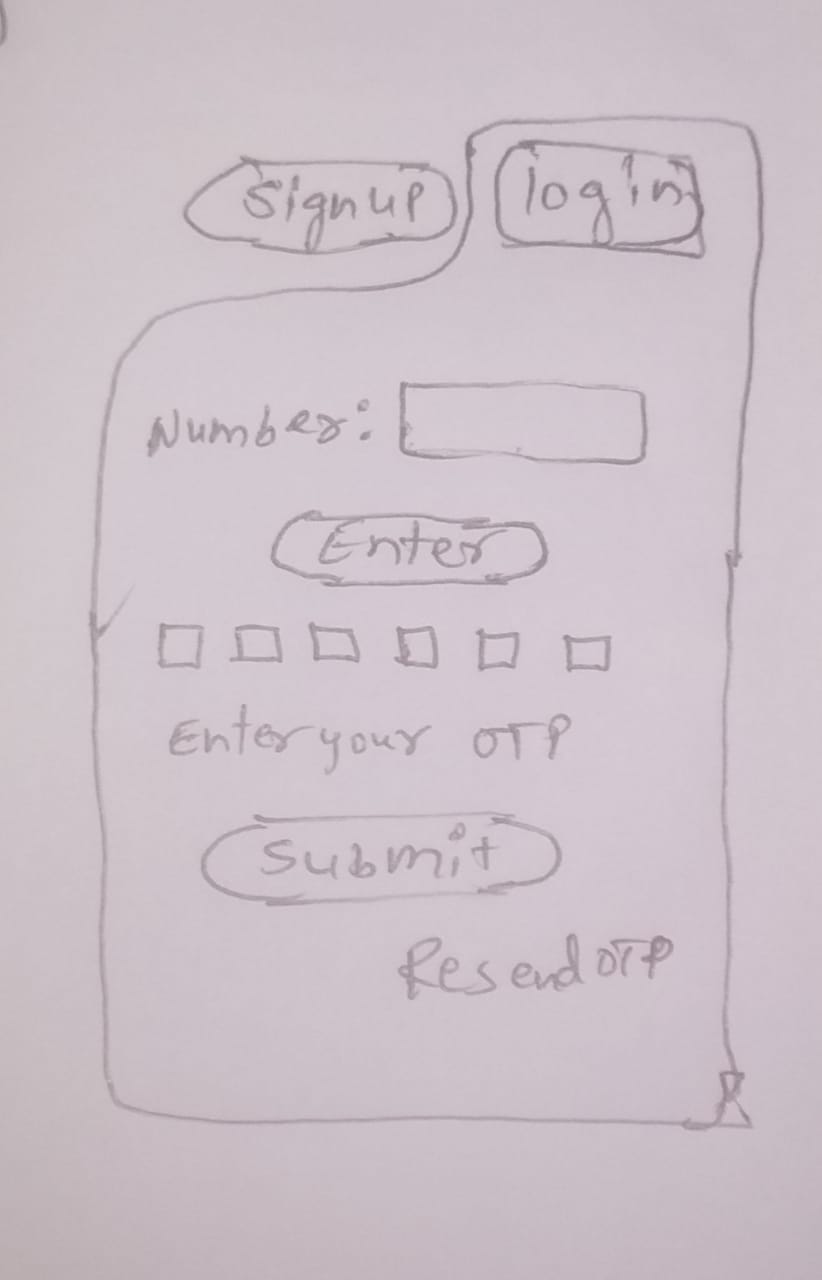 Signup login
Number:
Enter
Enter your OTP
Submit
Resend OTP